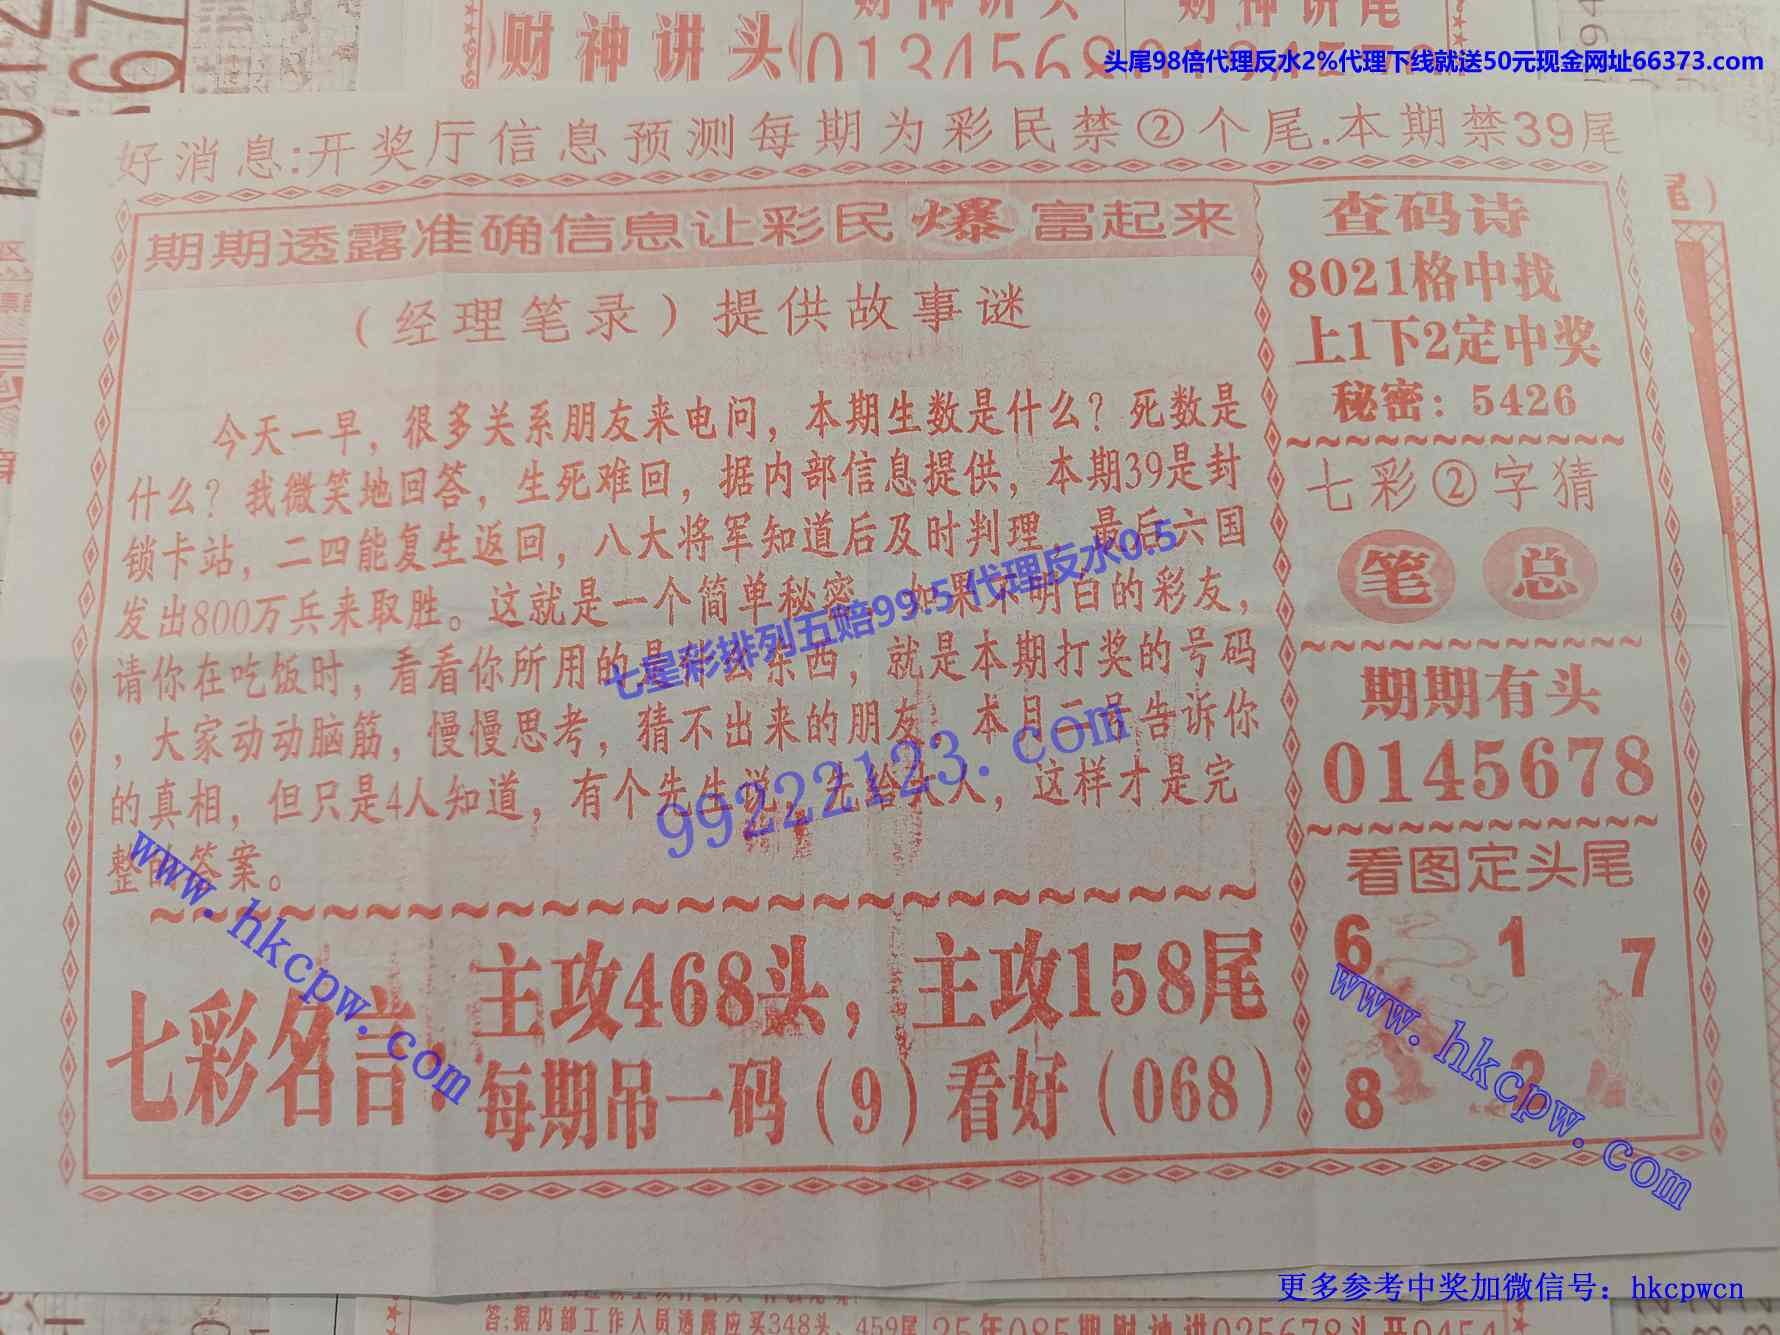 财神讲头
0134568
头尾98倍代理反水2%代理下线就送50元现金网址66373.com
好消息:开奖厅信息预测每期为彩民禁②个尾.本期禁39尾
期期透露准确信息让彩民爆富起来
（经理笔录）提供故事谜
今天一早，很多关系朋友来电问，本期生数是什么？死数是
什么？我微笑地回答，生死难回，据内部信息提供，本期39是封
锁卡站，二四能复生返回，八大将军知道后及时判理，最后六国
发出800万兵来取胜。这就是一个简单秘密，如果不明白的彩友，
请你在吃饭时，看看你所用的是什么东西，就是本期打奖的号码
，大家动动脑筋，慢慢思考，猜不出来的朋友，本月二号告诉你
的真相，但只是4人知道，有个先生说，先给大人，这样才是完
整的答案。
七星彩排列五赔99.5代理反水0.5
99222123.com
七彩名言:
主攻468头，主攻158尾
每期吊一码（9）看好（068）
查码诗
8021格中找
上1下2定中奖
秘密：5426
七彩②字猜
笔 总
期期有头
0145678
看图定头尾
6 1 7
8 2
www.hkcpw.com
www.hkcpw.com
更多参考中奖加微信号：hkcpwcn
答;据内部工作人员透露应买348头、459尾
25年085期财神讲025678头开0454